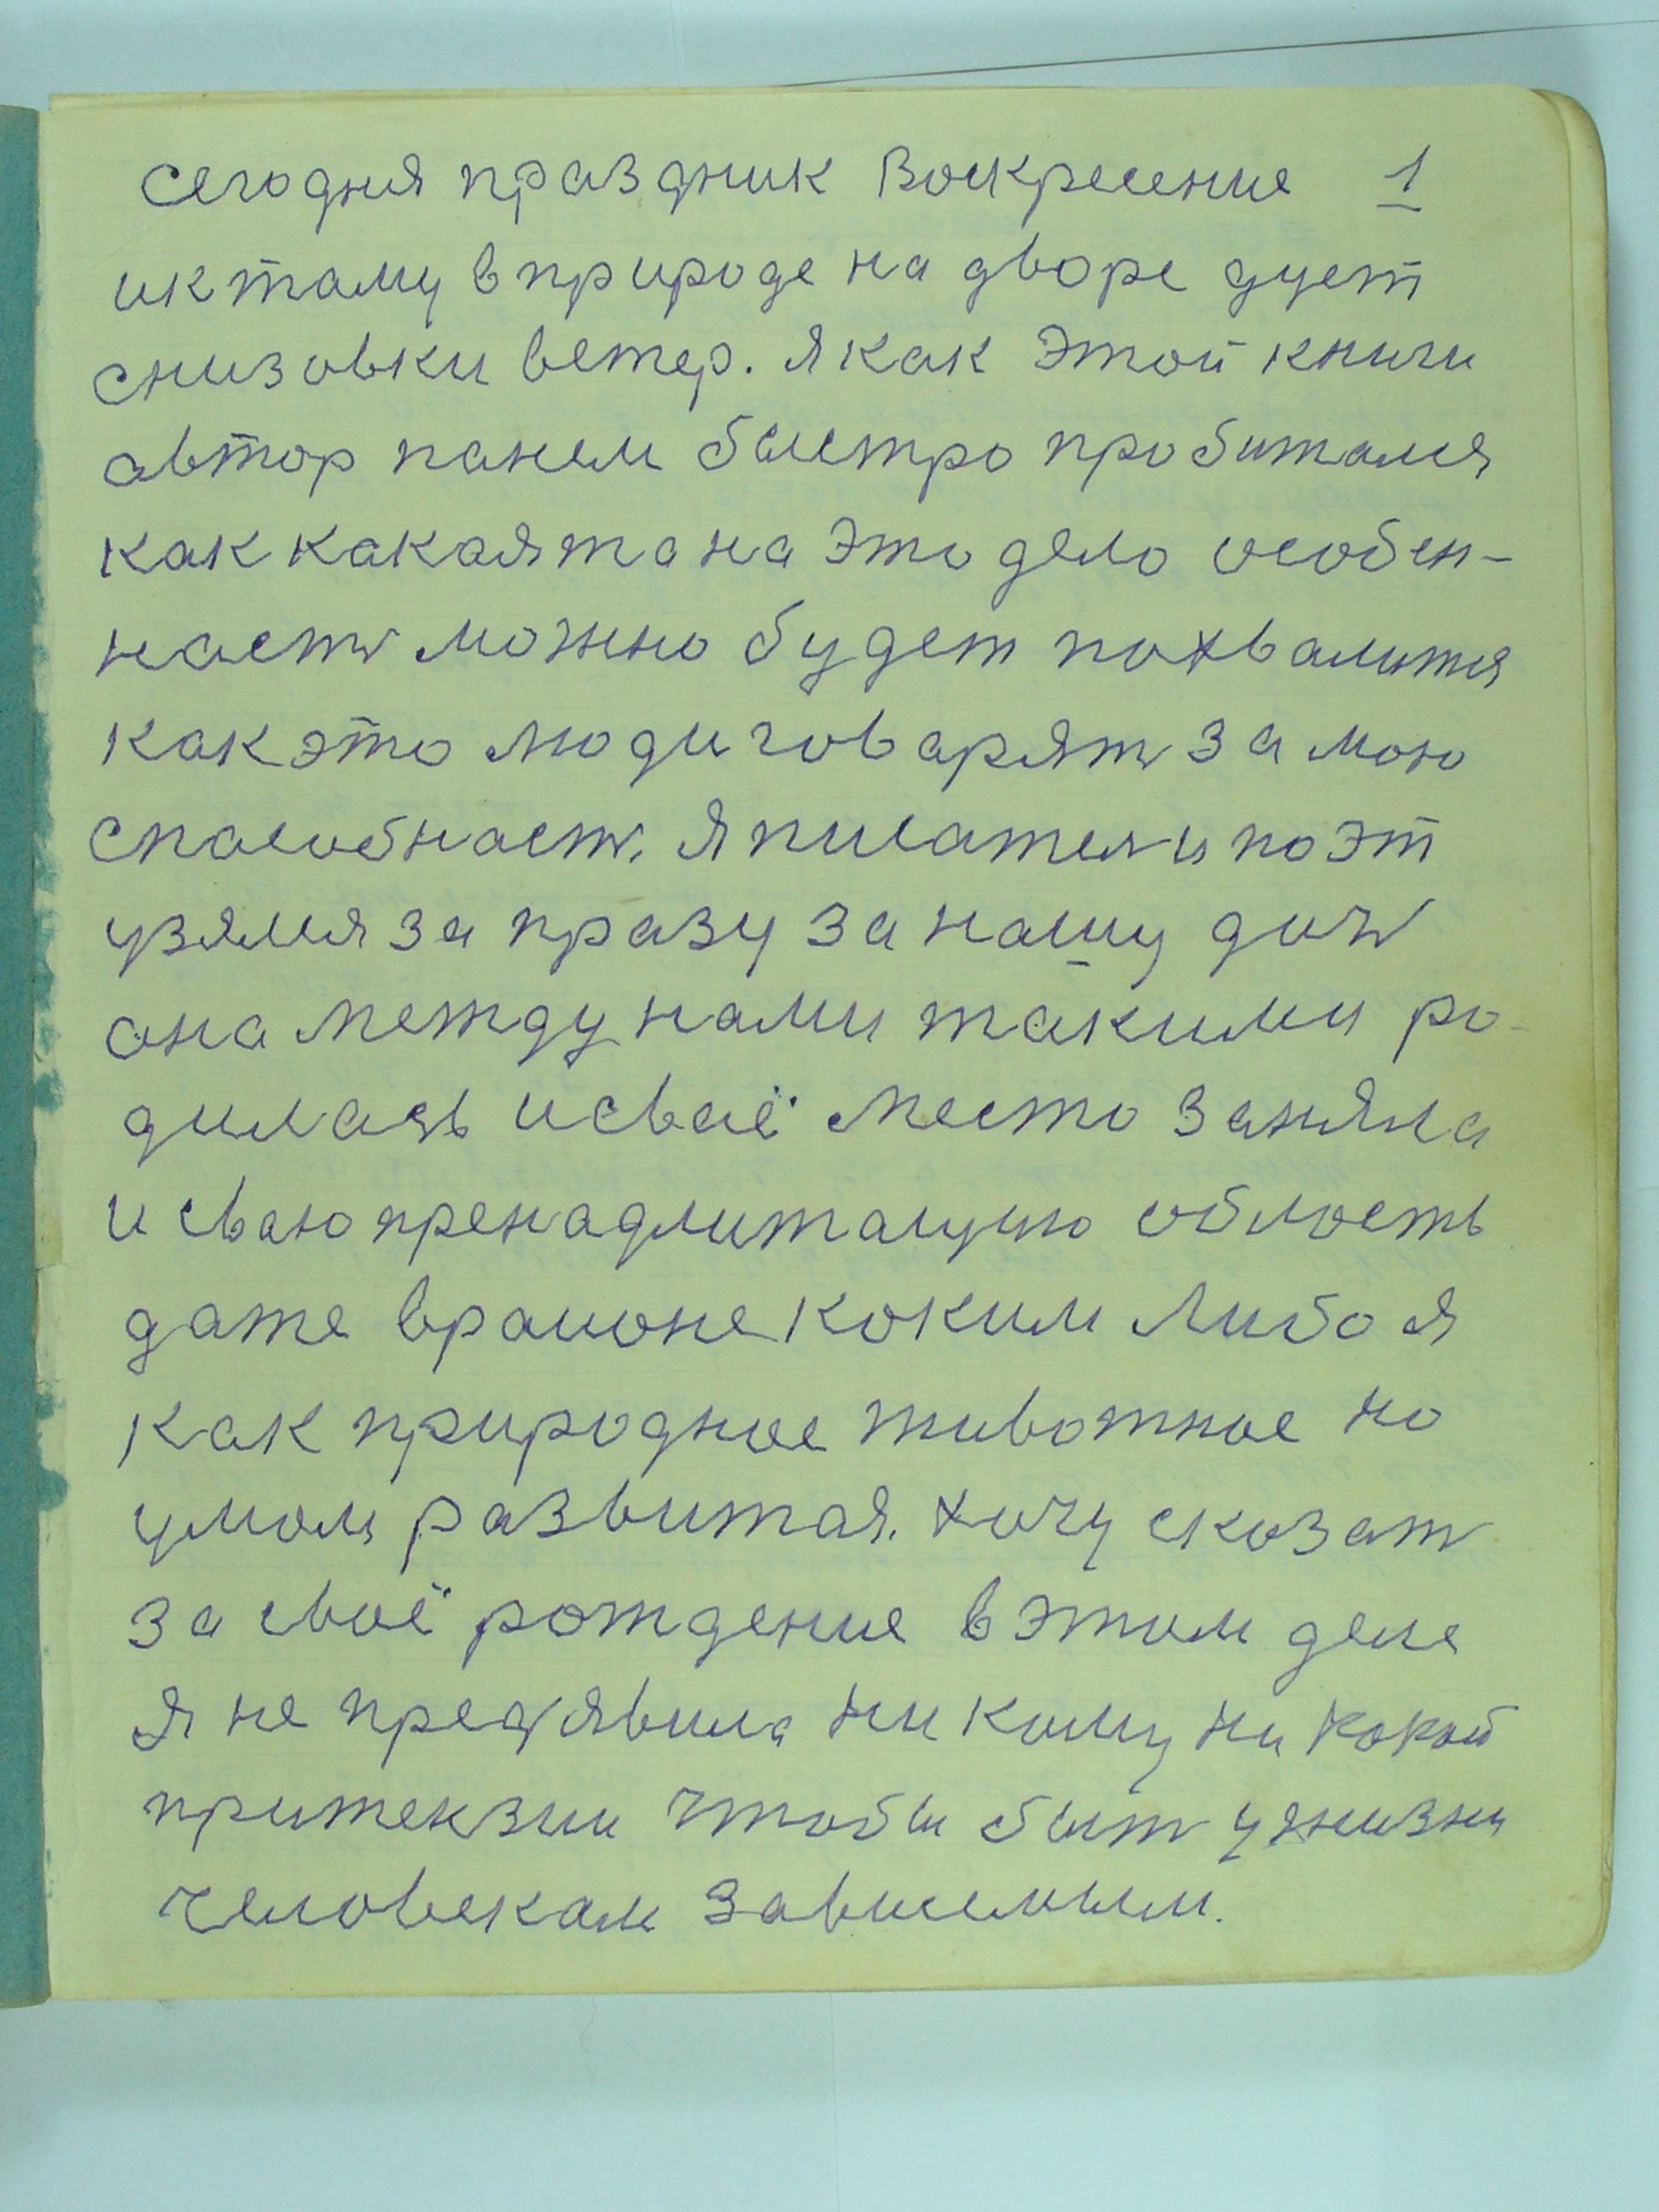 Сегодня праздник Воскресение 1
ик таму в природе на дворе дует
снизовки ветер. Я как этой книги
автор панем быстро пробитался
как какаята на это дело особен-
насть можно будет похвалится
как это люди говарять за мою
спасобнасть. Я писатель и поэт
узялся за празу за нашу дич
она между нами такими ро-
дилась и сваё место заняла
и сваю пренадлижащую область
даже в раионе коким либо я
как природное животное но
умом развитая. Хочу сказать
за своё рождение в этом деле
я не предявила ни кому ни какой
притензии чтобы быть у жизни
человекам зависемым.